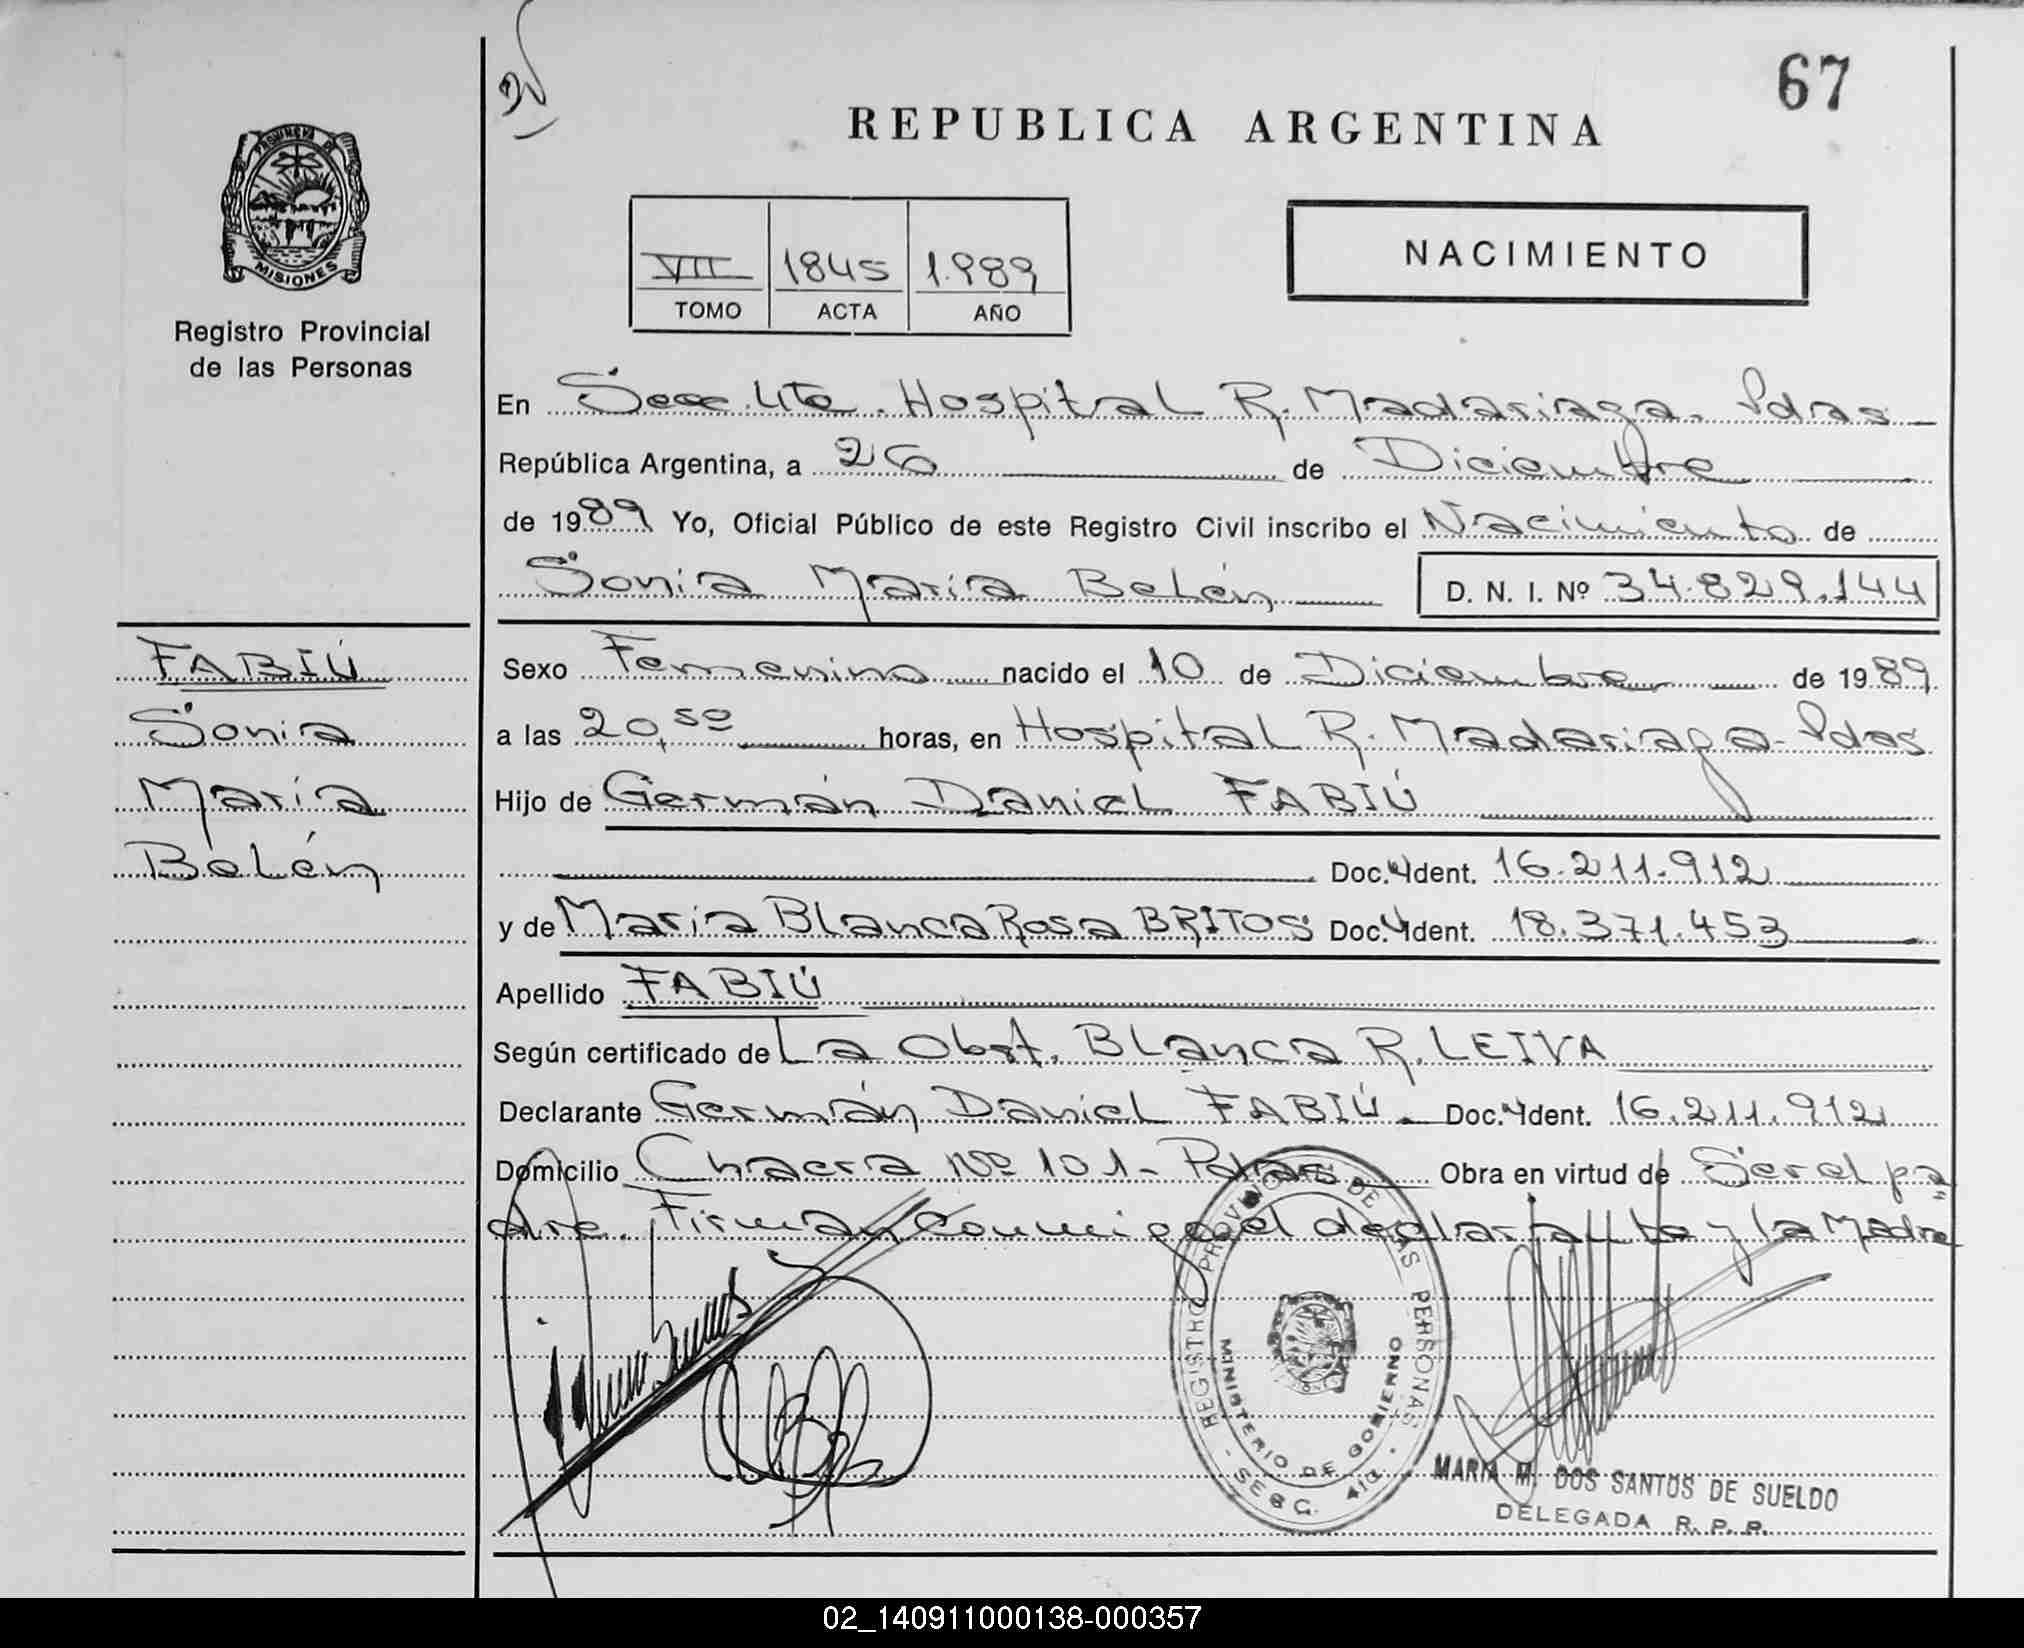 67
REPUBLICA ARGENTINA
PROVINCIA DE
MISIONES
Registro Provincial
de las Personas
VII 1845 1.989
TOMO ACTA AÑO
NACIMIENTO
En Secc. 4ta. Hospital R. Madariaga. Pdas
República Argentina, a 26 de Diciembre
de 1989 Yo, Oficial Público de este Registro Civil inscribo el Nacimiento de
Sonia María Belén D. N. I. Nº 34.829.144
FABIÚ
Sonia
María
Belén
Sexo Femenino nacido el 10 de Diciembre de 1989
a las 20,50 horas, en Hospital R. Madariaga - Pdas
Hijo de Germán Daniel FABIÚ
Doc. Ident. 16.211.912
y de María Blanca Rosa BRITOS Doc. Ident. 18.371.453
Apellido FABIÚ
Según certificado de La Obst. Blanca R. LEIVA
Declarante Germán Daniel FABIÚ. Doc. Ident. 16.211.912
Domicilio Chacra Nº 101 - Pdas Obra en virtud de Ser el pa
dre. Firman conmigo el declarante y la Madre
REGISTRO PROVINCIAL DE LAS PERSONAS
MINISTERIO DE GOBIERNO
MARIA M. DOS SANTOS DE SUELDO
DELEGADA R. P. P.
02_140911000138-000357